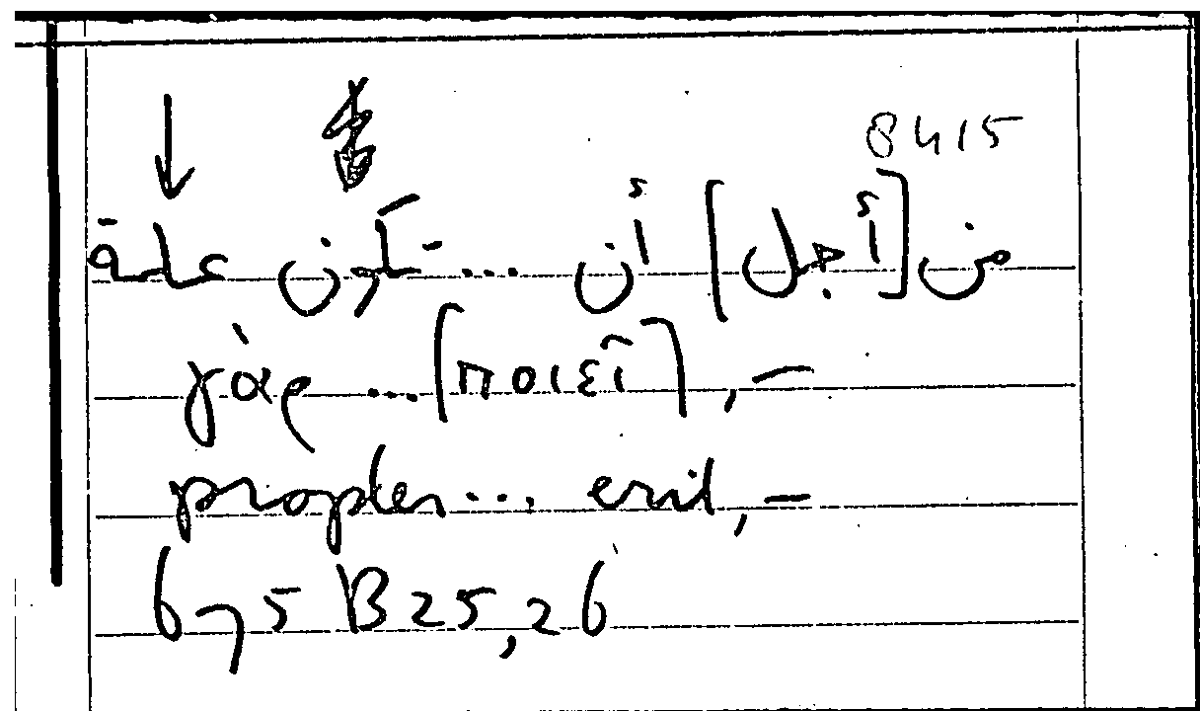 8415
من [أجل] أن ... تكون علة
γὰρ ... [ποιεῖ], –
propter ... erit, –
675 B 25, 26